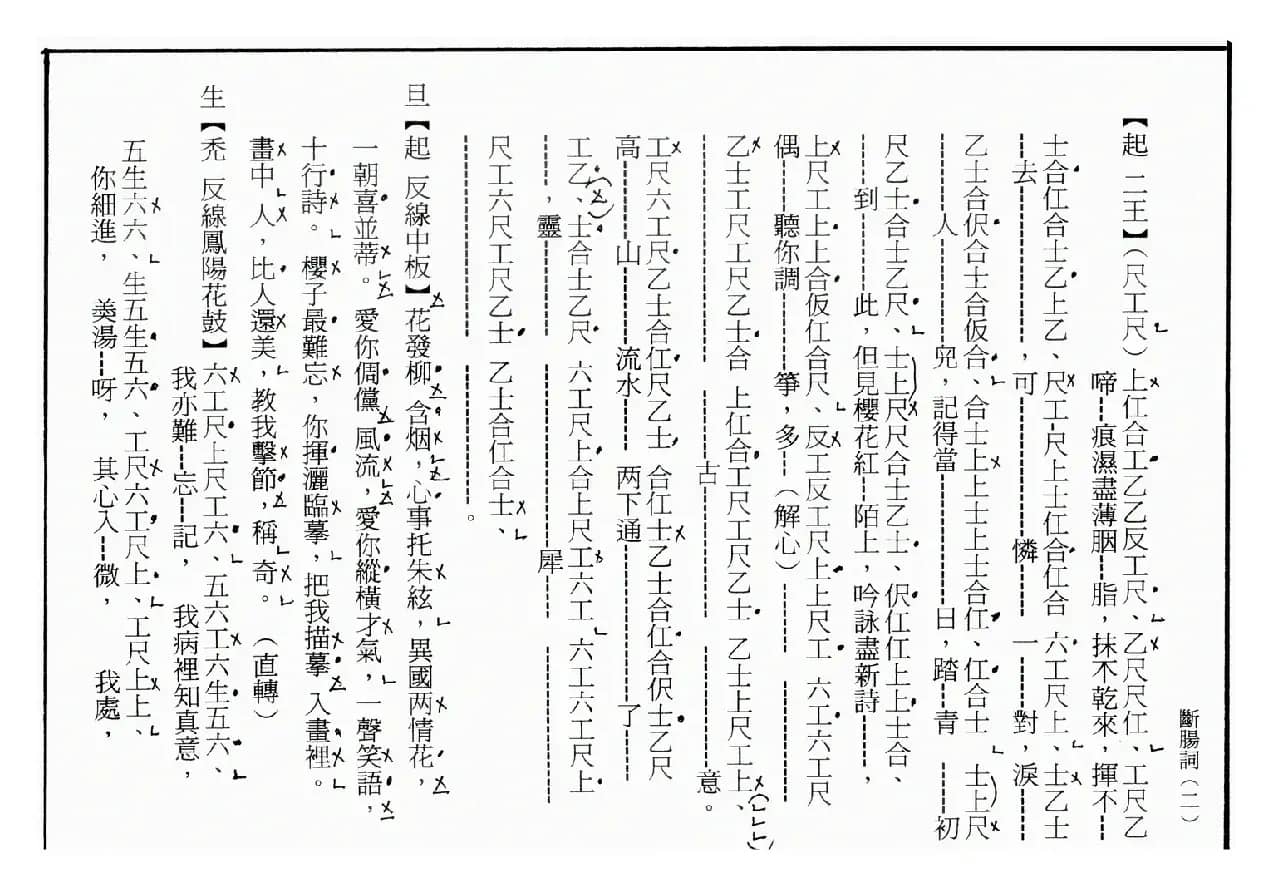 斷腸詞(二)
【起 二王】(尺工尺)上仩合工乙乙反工尺、乙尺尺仩、工尺乙
啼痕濕盡薄胭脂,抹不乾來,揮不
士合仩合士乙上乙、尺工尺上士仩合仩合 六工尺上、士乙士
去,可憐一對,淚
乙士合伬合士合仮合、合士上上士上士合仩、仩合士 士上尺
人兒,記得當日,踏青初
尺乙士合士乙尺、士上尺尺合士乙士、伬仩仩上上士合、
到此,但見櫻花紅陌上,吟詠盡新詩,
上尺工上上合仮仩合尺、反工反工尺上上尺工 六工六工尺
偶聽你調箏,多(解心)
乙士工尺工尺乙士合 上仩合工尺工尺乙士 乙士上尺工上、
古意。
工尺六工尺乙士合仩尺乙士 合仩士乙士合仩合伬士乙尺
高山流水 两下通了
工乙、士合士乙尺 六工尺上合上尺工六工 六工六工尺上
,靈犀
尺工六尺工尺乙士 乙士合仩合士、
。
旦【起 反線中板】花發柳,含烟,心事托朱絃,異國两情花,
一朝喜並蒂。愛你倜儻風流,愛你縱橫才氣,一聲笑語,
十行詩。櫻子最難忘,你揮灑臨摹,把我描摹入畫裡。
畫中人,比人還美,教我擊節,稱奇。(直轉)
生【禿 反線鳳陽花鼓】六工尺上尺工六、五六工六生五六、
我亦難忘記,我病裡知真意,
五生六六、生五生五六、工尺六工尺上、工尺上上、
你細進,羮湯呀,其心入微,我處,